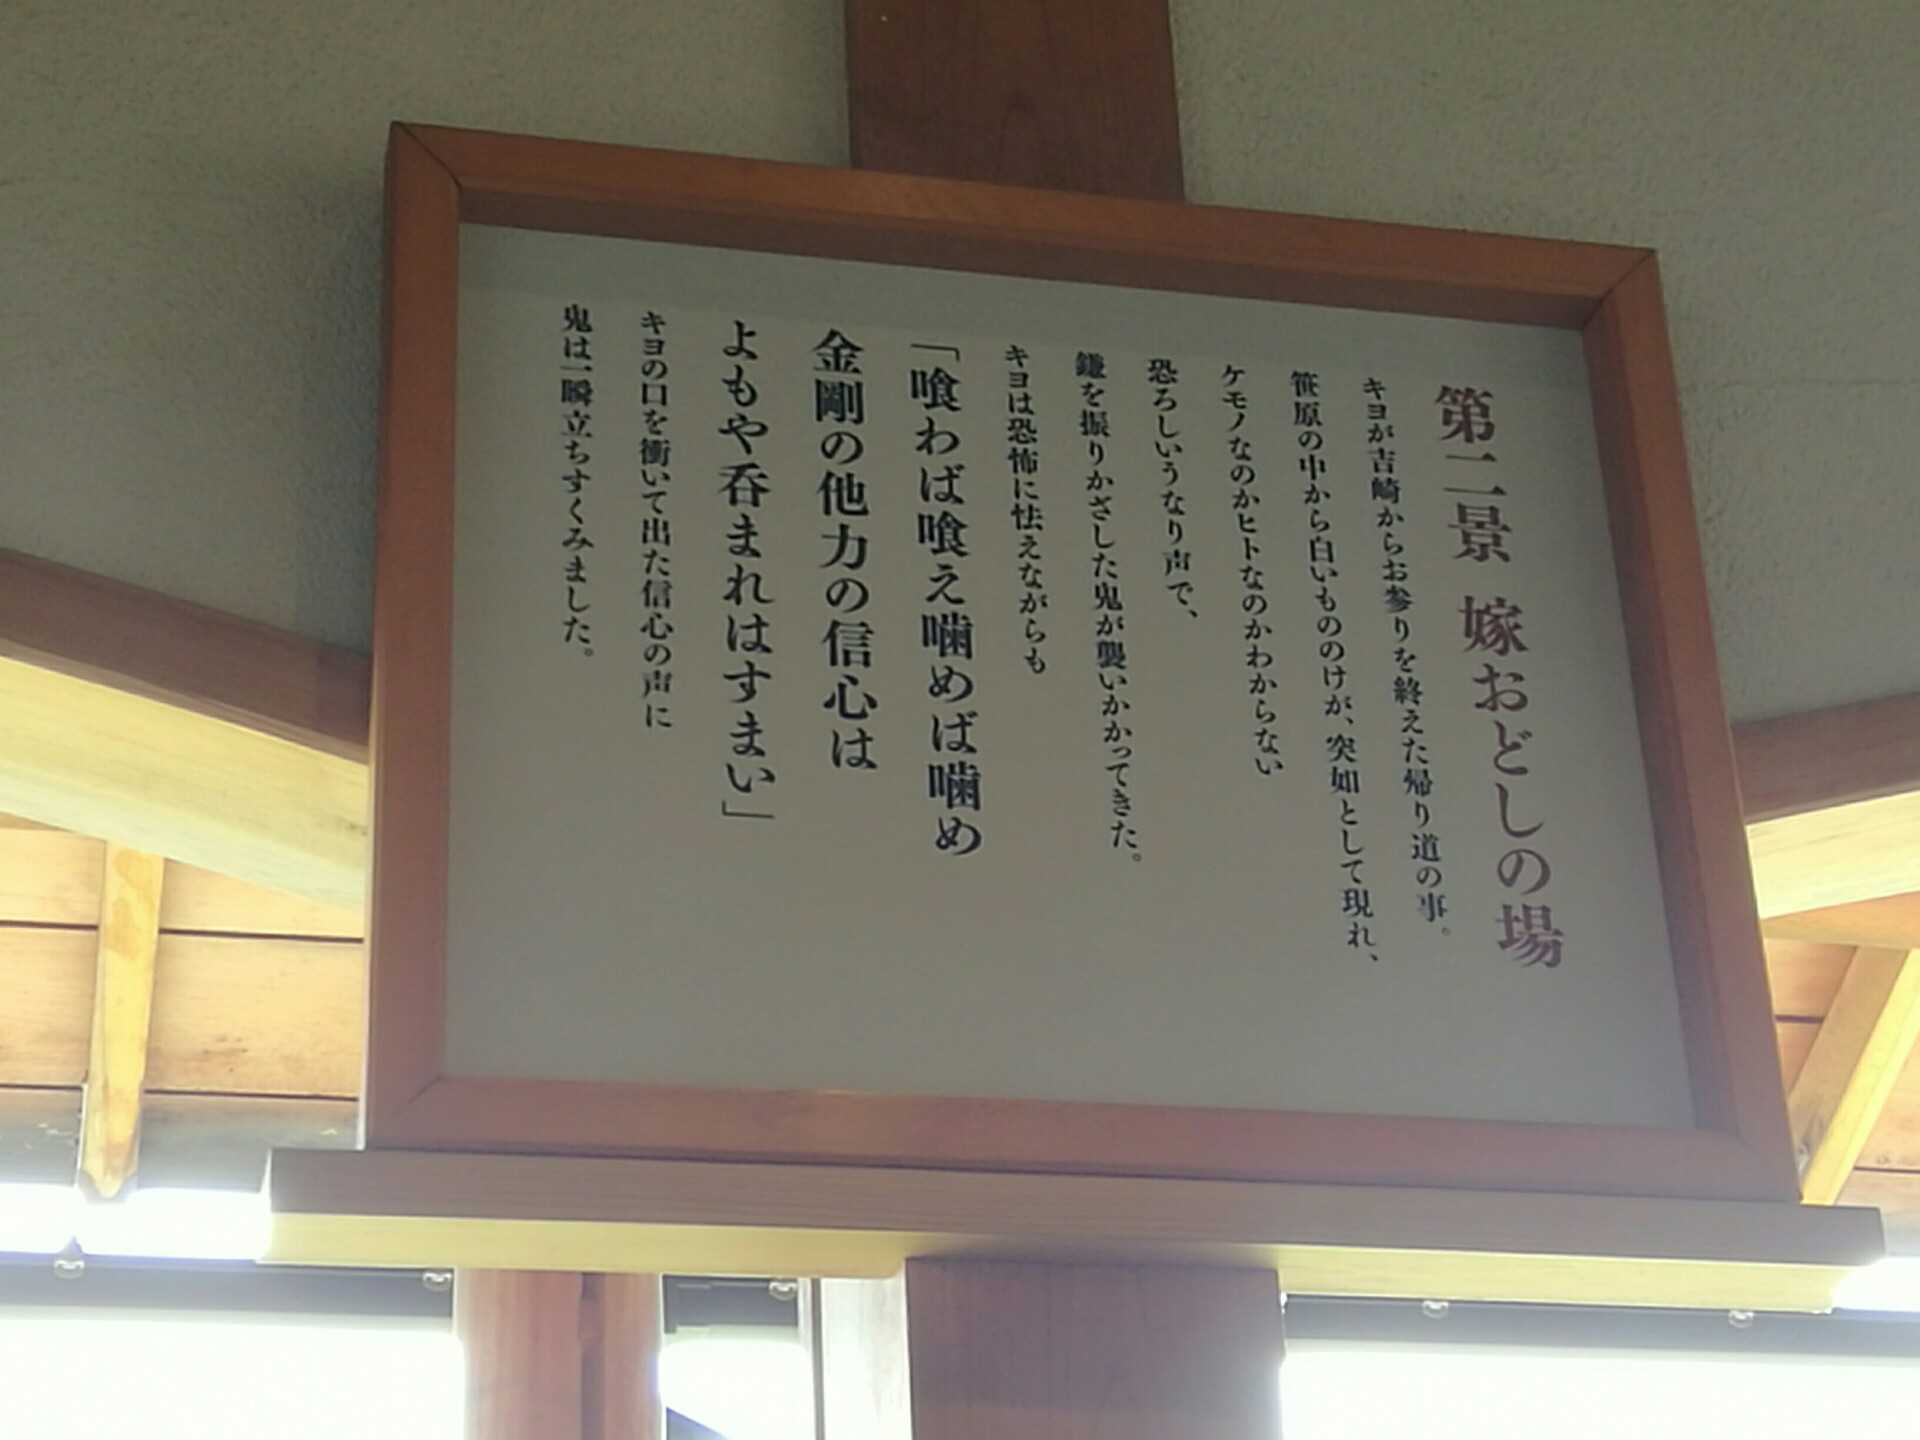 第二景 嫁おどしの場
キヨが吉崎からお参りを終えた帰り道の事。
笹原の中から白いもののけが、突如として現れ、
ケモノなのかヒトなのかわからない
恐ろしいうなり声で、
鎌を振りかざした鬼が襲いかかってきた。
キヨは恐怖に怯えながらも
「喰わば喰え噛めば噛め
金剛の他力の信心は
よもや呑まれはすまい」
キヨの口を衝いて出た信心の声に
鬼は一瞬立ちすくみました。